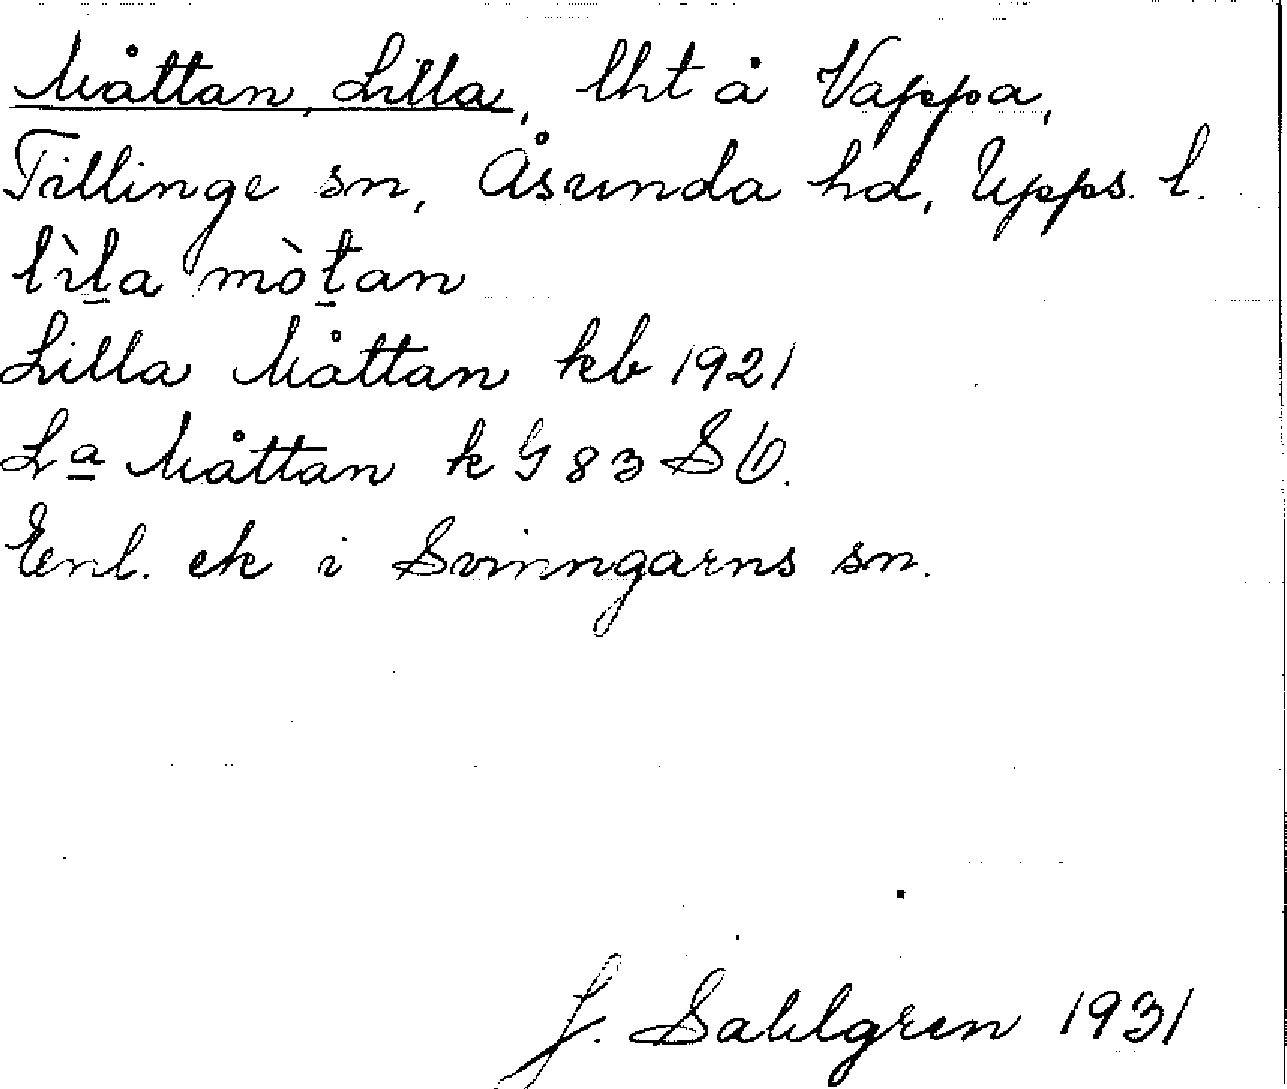 Måttan, Lilla, lht å Vappa,
Tillinge sn, Åsunda hd, Upps. l.
lìḻa mòṯan
Lilla Måttan kb 1921
La Måttan k G 83 SO.
Enl. ek i Svinngarns sn.
J. Sahlgren 1931